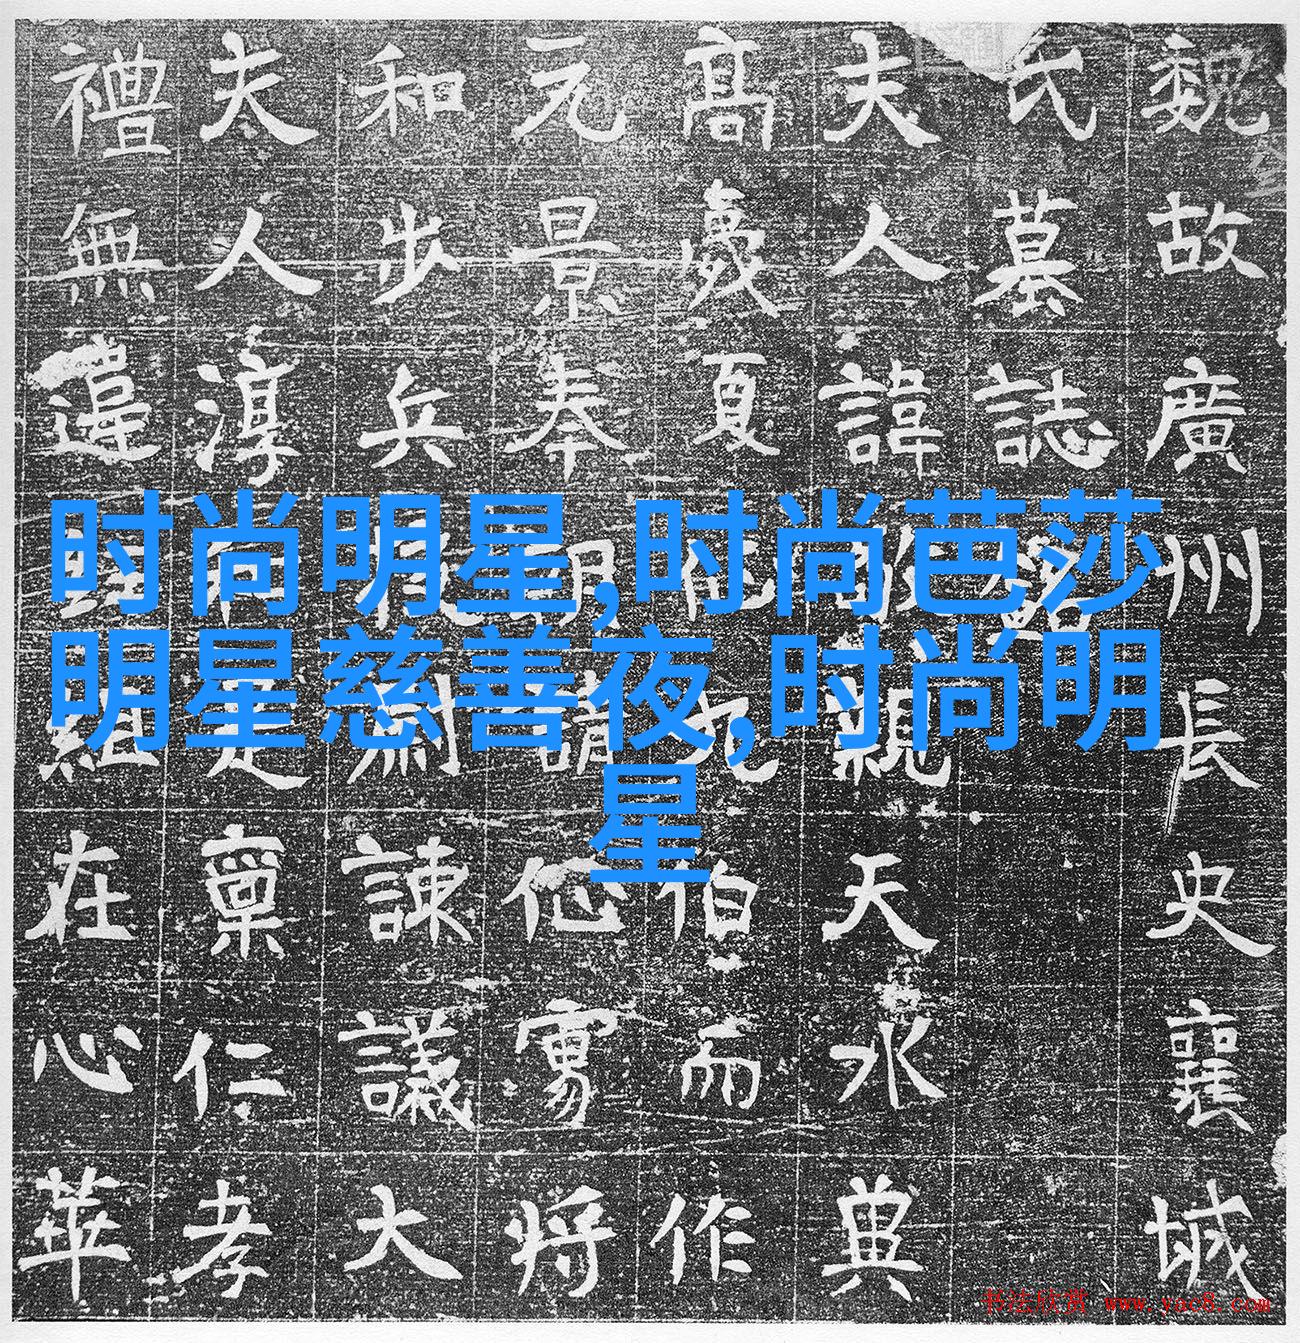 魏故廣州長史襄城
氏墓誌銘
夫人諱親天水
高歲夏九伯而作
元景奉朝請將
和步兵校尉諫議大
夫人淳稟仁孝
禮無違組在心華
时尚明星,时尚芭莎
明星慈善夜,时尚明
星
书法欣赏 www.yac8.com